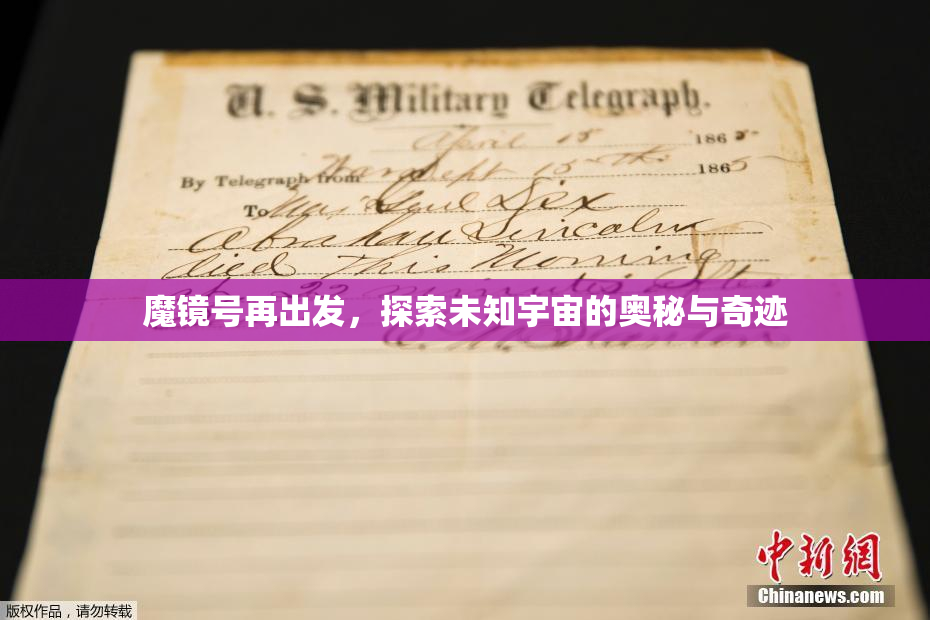 U. S. Military Telegraph.
April 15 1865
By Telegraph from War Dept 15th 1865
To Maj Genl Dix
Abraham Lincoln
died This Morning
at 22 minutes after
魔镜号再出发，探索未知宇宙的奥秘与奇迹
中新网
Chinanews.com
版权作品，请勿转载